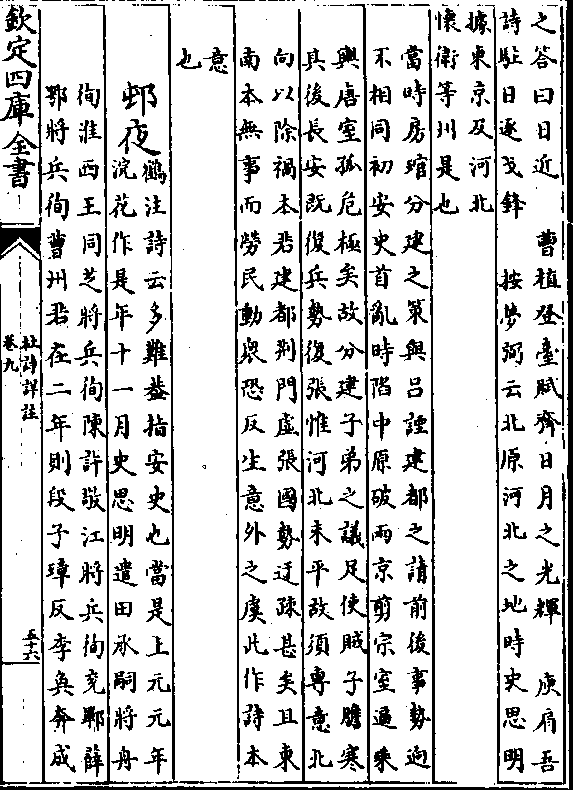 之答曰日近　曹植登臺賦齊日月之光輝　庾肩吾
詩駐日逐戈鋒　按夢弼云北原河北之地時史思明
據東京及河北
懷衛等州是也
當時房琯分建之策與呂諲建都之請前後事勢迥
不相同初安史首亂時陷中原破兩京剪宗室逼乘
輿唐室孤危極矣故分建子弟之議足使賊子膽寒
其後長安既復兵勢復張惟河北未平故須專意北
向以除禍本若建都荆門虛張國勢迂疎甚矣且東
南本無事而勞民動衆恐反生意外之虞此作詩本
意
也
邨夜
鶴注詩云多難蓋指安史也當是上元元年
浣花作是年十一月史思明遣田承嗣將舟
徇淮西王同芝將兵徇陳許敬江將兵徇兖鄆薛
鄂將兵徇曹州若在二年則段子璋反李奐奔成
欽定四庫全書
杜詩詳註
卷九
五十六